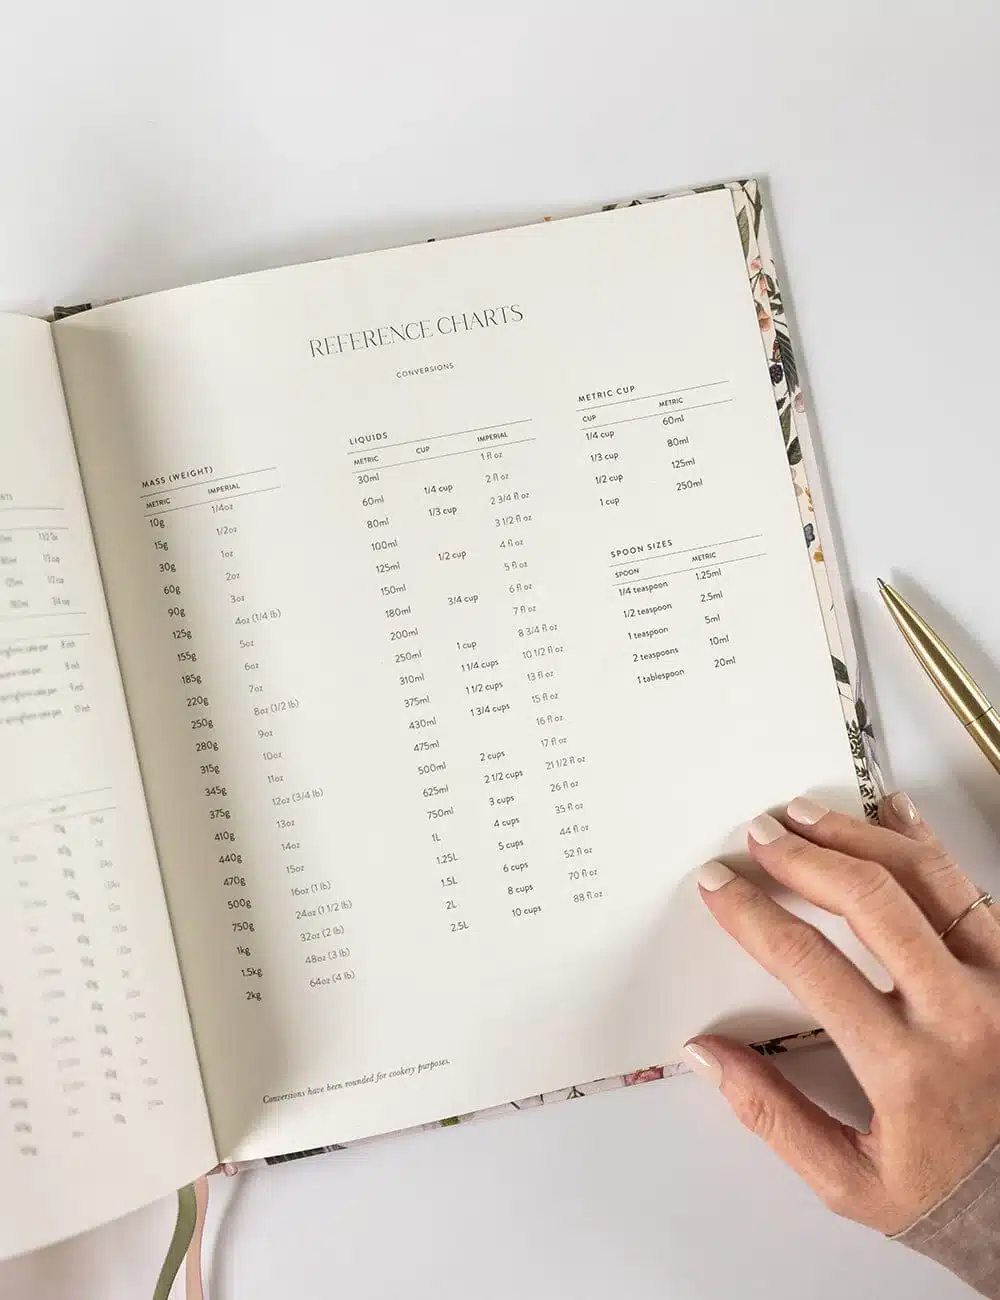 REFERENCE CHARTS
CONVERSIONS
MASS (WEIGHT)
METRIC IMPERIAL
10g 1/4oz
15g 1/2oz
30g 1oz
60g 2oz
90g 3oz
125g 4oz (1/4 lb)
155g 5oz
185g 6oz
220g 7oz
250g 8oz (1/2 lb)
280g 9oz
315g 10oz
345g 11oz
375g 12oz (3/4 lb)
410g 13oz
440g 14oz
470g 15oz
500g 16oz (1 lb)
750g 24oz (1 1/2 lb)
1kg 32oz (2 lb)
1.5kg 48oz (3 lb)
2kg 64oz (4 lb)
LIQUIDS
METRIC CUP IMPERIAL
30ml 1 fl oz
60ml 1/4 cup 2 fl oz
80ml 1/3 cup 2 3/4 fl oz
100ml 3 1/2 fl oz
125ml 1/2 cup 4 fl oz
150ml 5 fl oz
180ml 3/4 cup 6 fl oz
200ml 7 fl oz
250ml 1 cup 8 3/4 fl oz
310ml 1 1/4 cups 10 1/2 fl oz
375ml 1 1/2 cups 13 fl oz
430ml 1 3/4 cups 15 fl oz
475ml 16 fl oz
500ml 2 cups 17 fl oz
625ml 2 1/2 cups 21 1/2 fl oz
750ml 3 cups 26 fl oz
1L 4 cups 35 fl oz
1.25L 5 cups 44 fl oz
1.5L 6 cups 52 fl oz
2L 8 cups 70 fl oz
2.5L 10 cups 88 fl oz
METRIC CUP
CUP METRIC
1/4 cup 60ml
1/3 cup 80ml
1/2 cup 125ml
1 cup 250ml
SPOON SIZES
SPOON METRIC
1/4 teaspoon 1.25ml
1/2 teaspoon 2.5ml
1 teaspoon 5ml
2 teaspoons 10ml
1 tablespoon 20ml
Conversions have been rounded for cookery purposes.